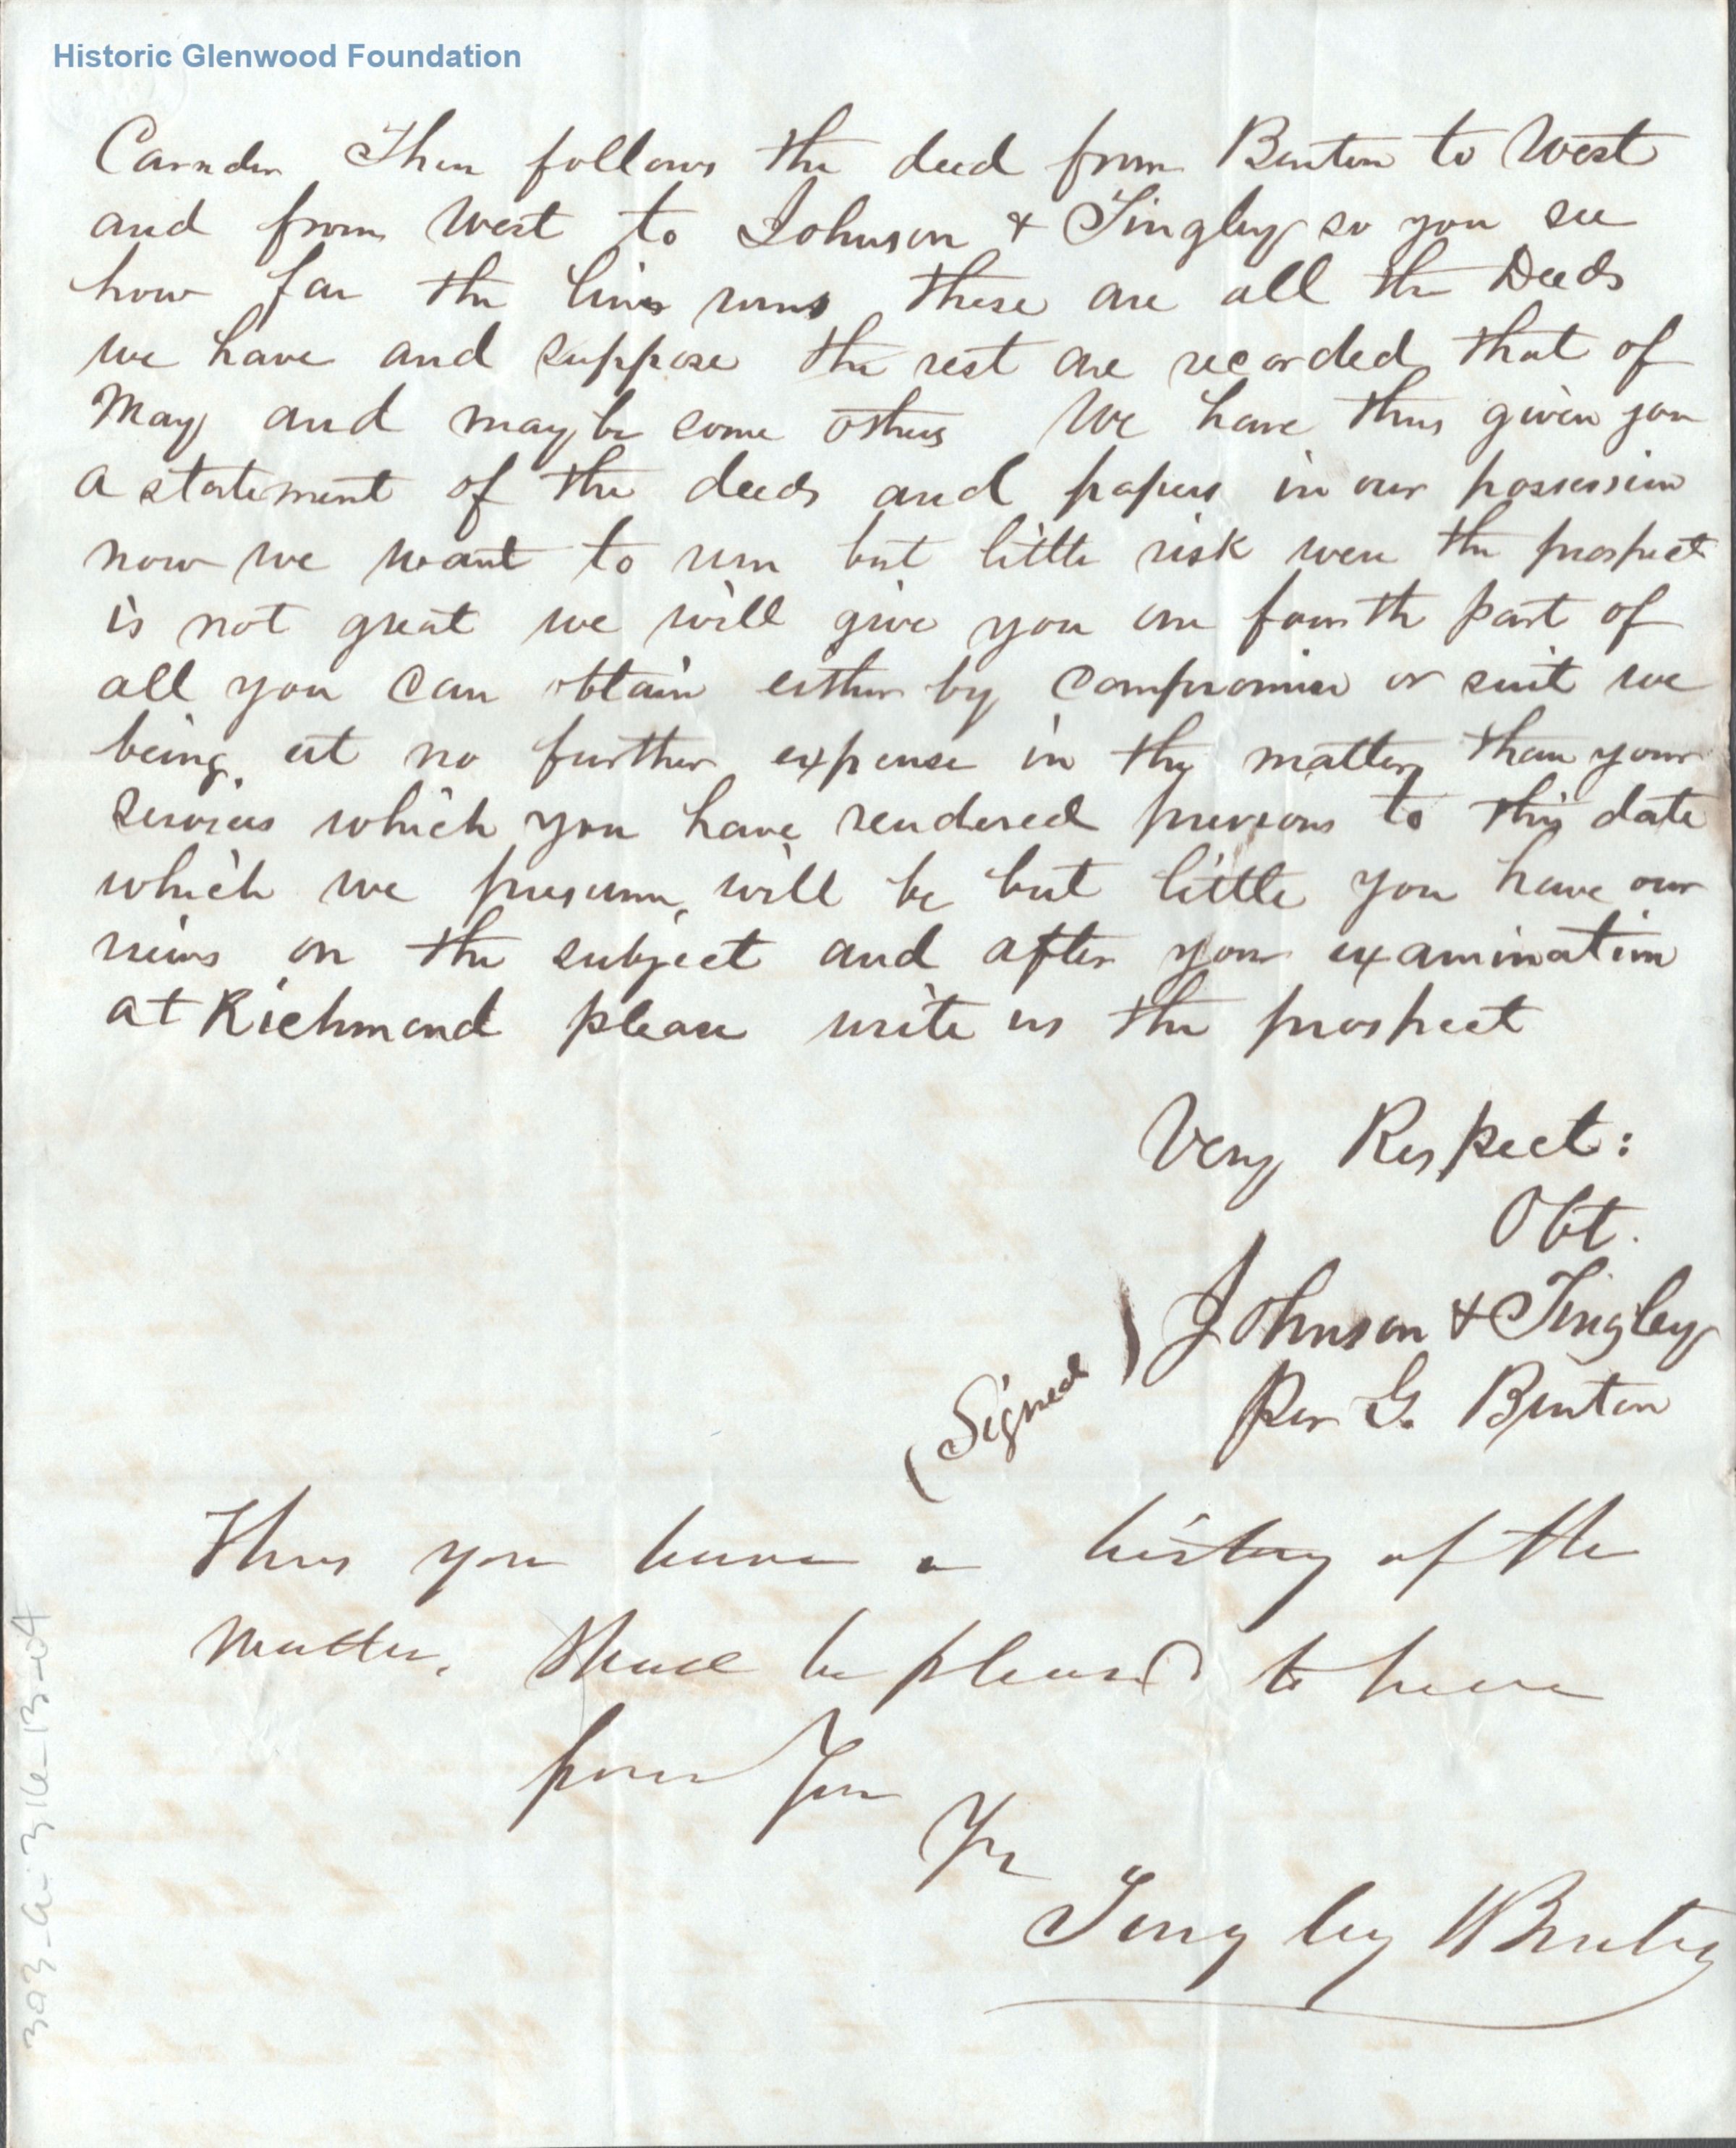 Historic Glenwood Foundation
Camden Then follows the deed from Benton to West
and from West to Johnson & Tingley so you see
how far the line runs these are all the Deeds
we have and suppose the rest are recorded that of
May and maybe some others We have thus given you
a statement of the deeds and papers in our possession
now we want to run but little risk were the prospect
is not great we will give you one fourth part of
all you can obtain either by compromise or suit we
being at no further expense in the matter than your
services which you have rendered previous to this date
which we presume will be but little you have our
views on the subject and after your examination
at Richmond please write us the prospect
Very Respect:
Obt.
(Signed) Johnson & Tingley
Per G. Benton
Thus you have a history of the
matter. Shall be pleased to hear
from you
Yrs
Tingley